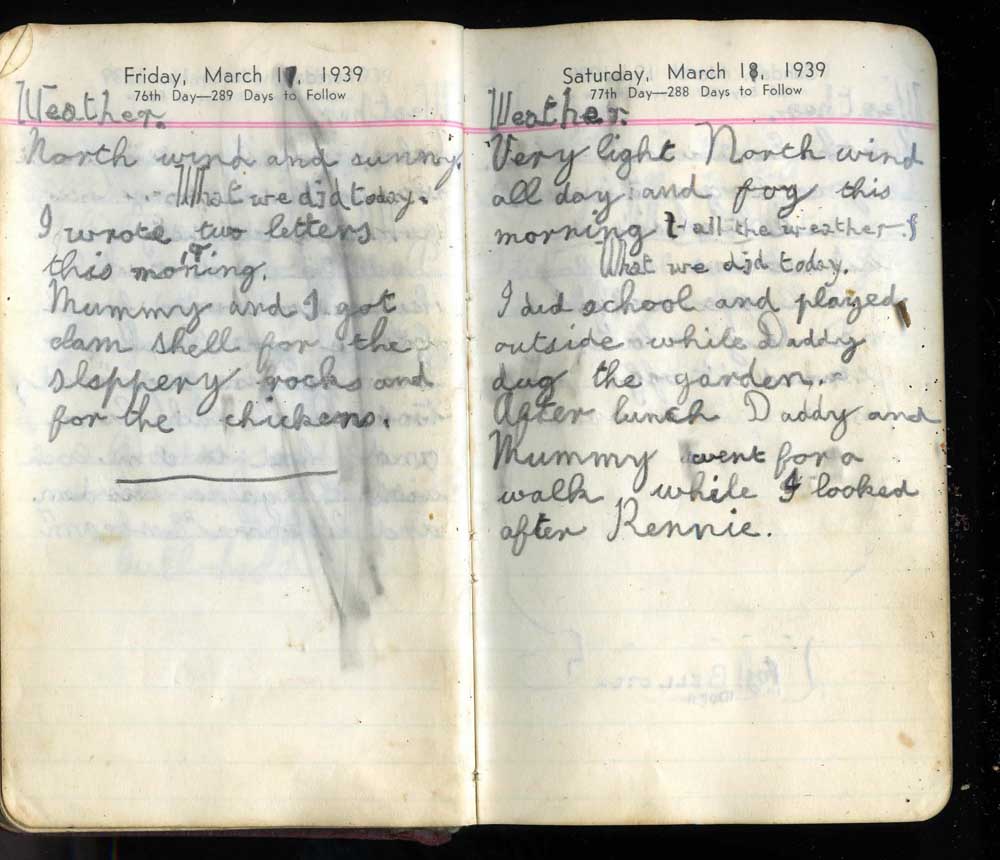 Friday, March 17, 1939
76th Day—289 Days to Follow
Weather.
North wind and sunny.
What we did today.
I wrote two letters
this morning.
Mummy and I got
clam shell for the
slippery rocks and
for the chickens.
Saturday, March 18, 1939
77th Day—288 Days to Follow
Weather.
Very light North wind
all day and fog this
morning {-all the weather.}
What we did today.
I did school and played
outside while Daddy
dug the garden.
After lunch Daddy and
Mummy went for a
walk while I looked
after Rennie.